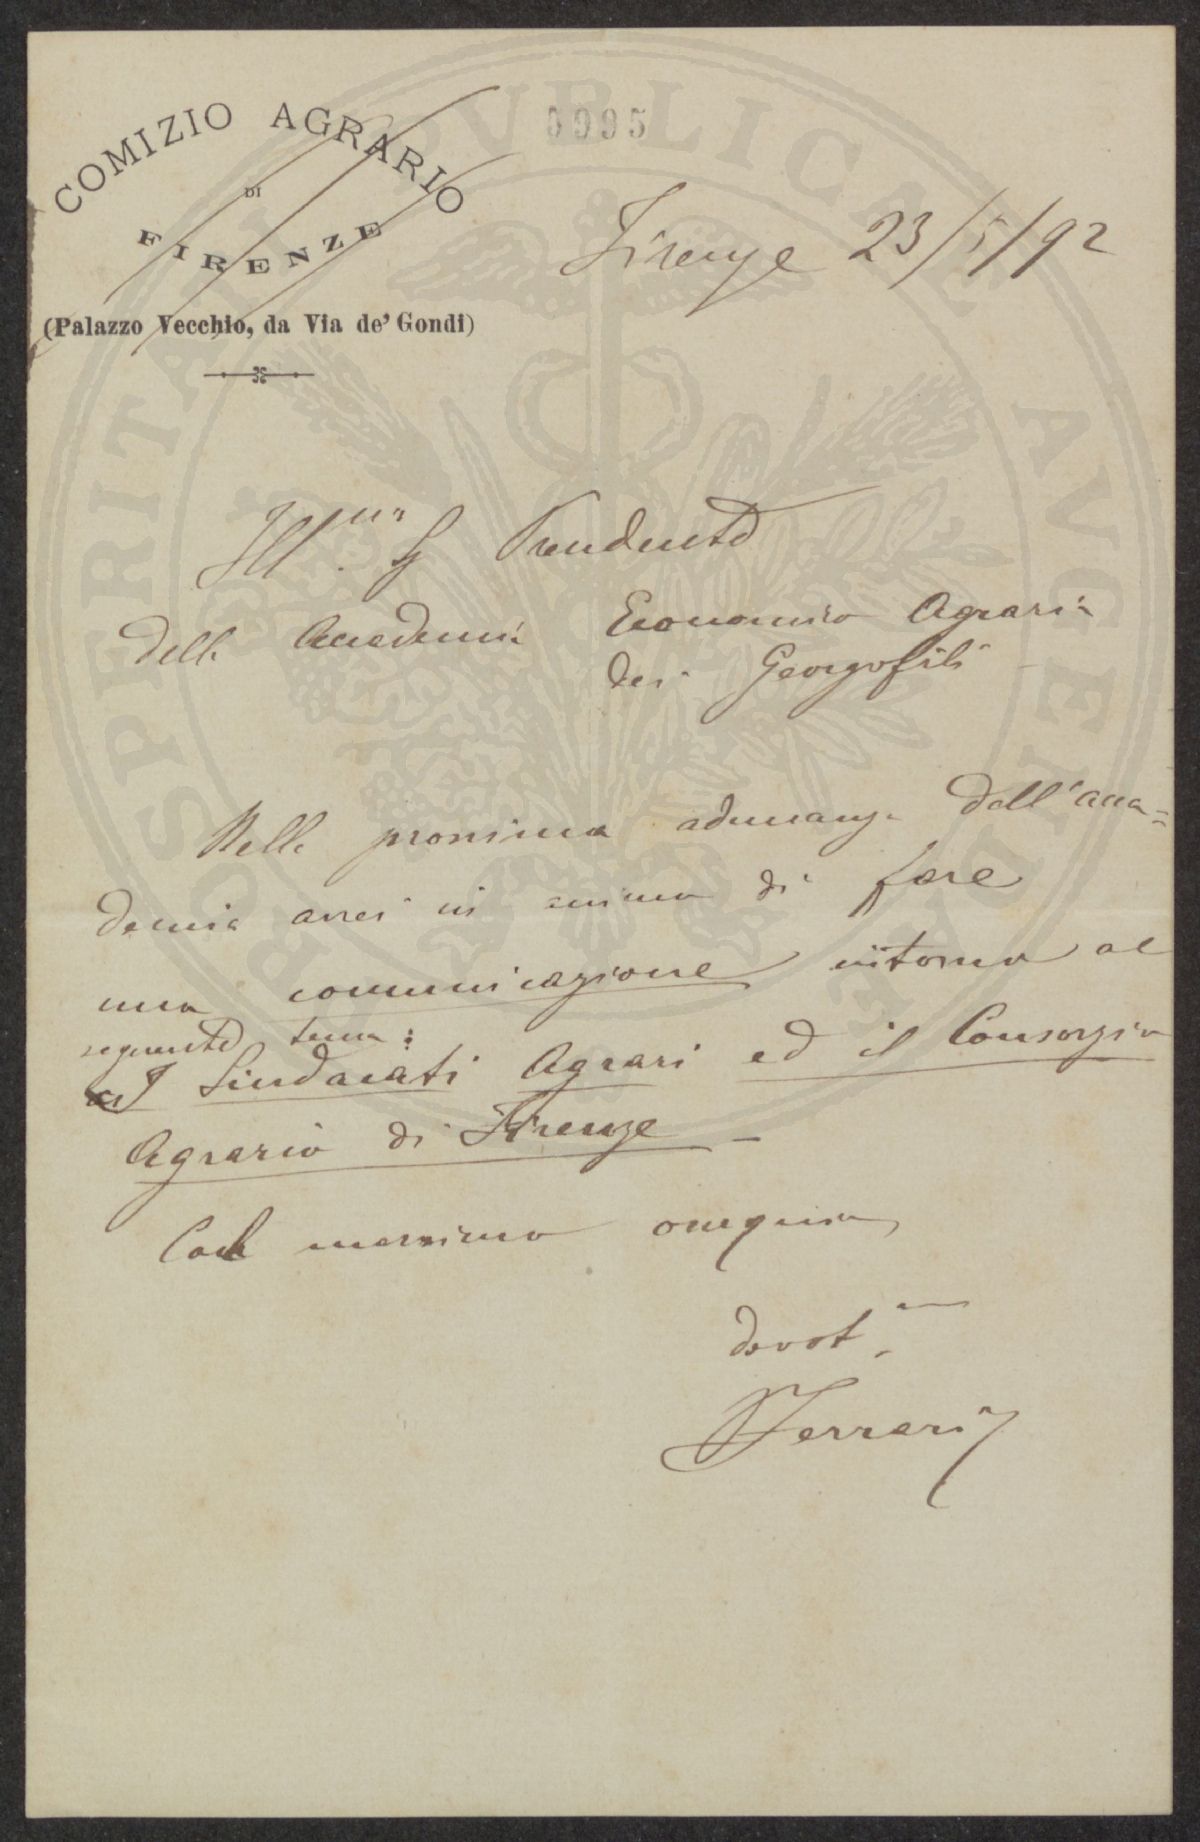 5995
COMIZIO AGRARIO
DI
FIRENZE
(Palazzo Vecchio, da Via de' Gondi)
Firenze 23/5/92
Ill.mo Sg Presidente
della Accademia Economico Agraria
dei Georgofili
Nella prossima adunanza dell'acca=
demia avrei in animo di fare
una comunicazione intorno al
seguente tema:
I Sindacati Agrari ed il Consorzio
Agrario di Firenze —
Col massimo ossequio
devot.mo
Ferrari
PROSPERITATI PVBLICAE AVGENDAE